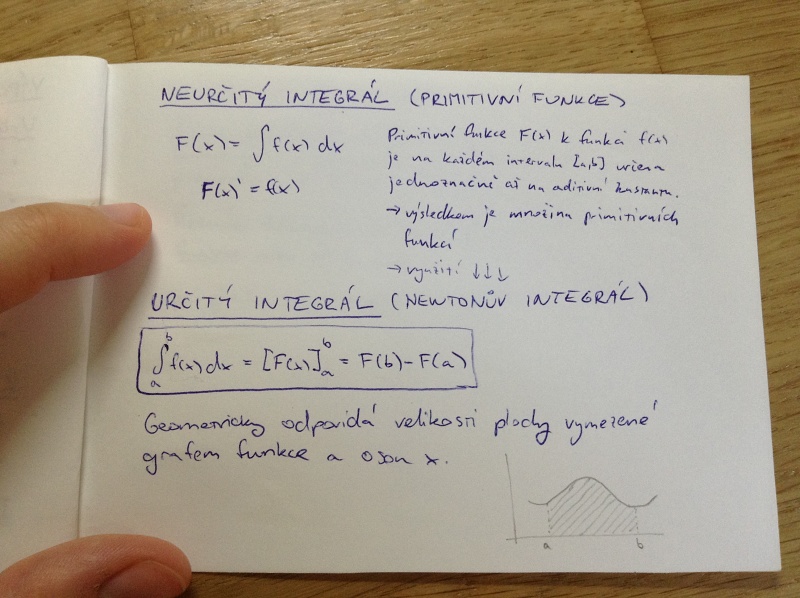 NEURČITÝ INTEGRÁL (PRIMITIVNÍ FUNKCE)
F(x) = ∫f(x) dx
F(x)' = f(x)
Primitivní funkce F(x) k funkci f(x)
je na každém intervalu [a,b] určena
jednoznačně až na aditivní konstantu.
→ výsledkem je množina primitivních
funkcí
→ využití ↓↓↓
URČITÝ INTEGRÁL (NEWTONŮV INTEGRÁL)
∫ₐᵇ f(x) dx = [F(x)]ₐᵇ = F(b) - F(a)
Geometricky odpovídá velikosti plochy vymezené
grafem funkce a osou x.
a b